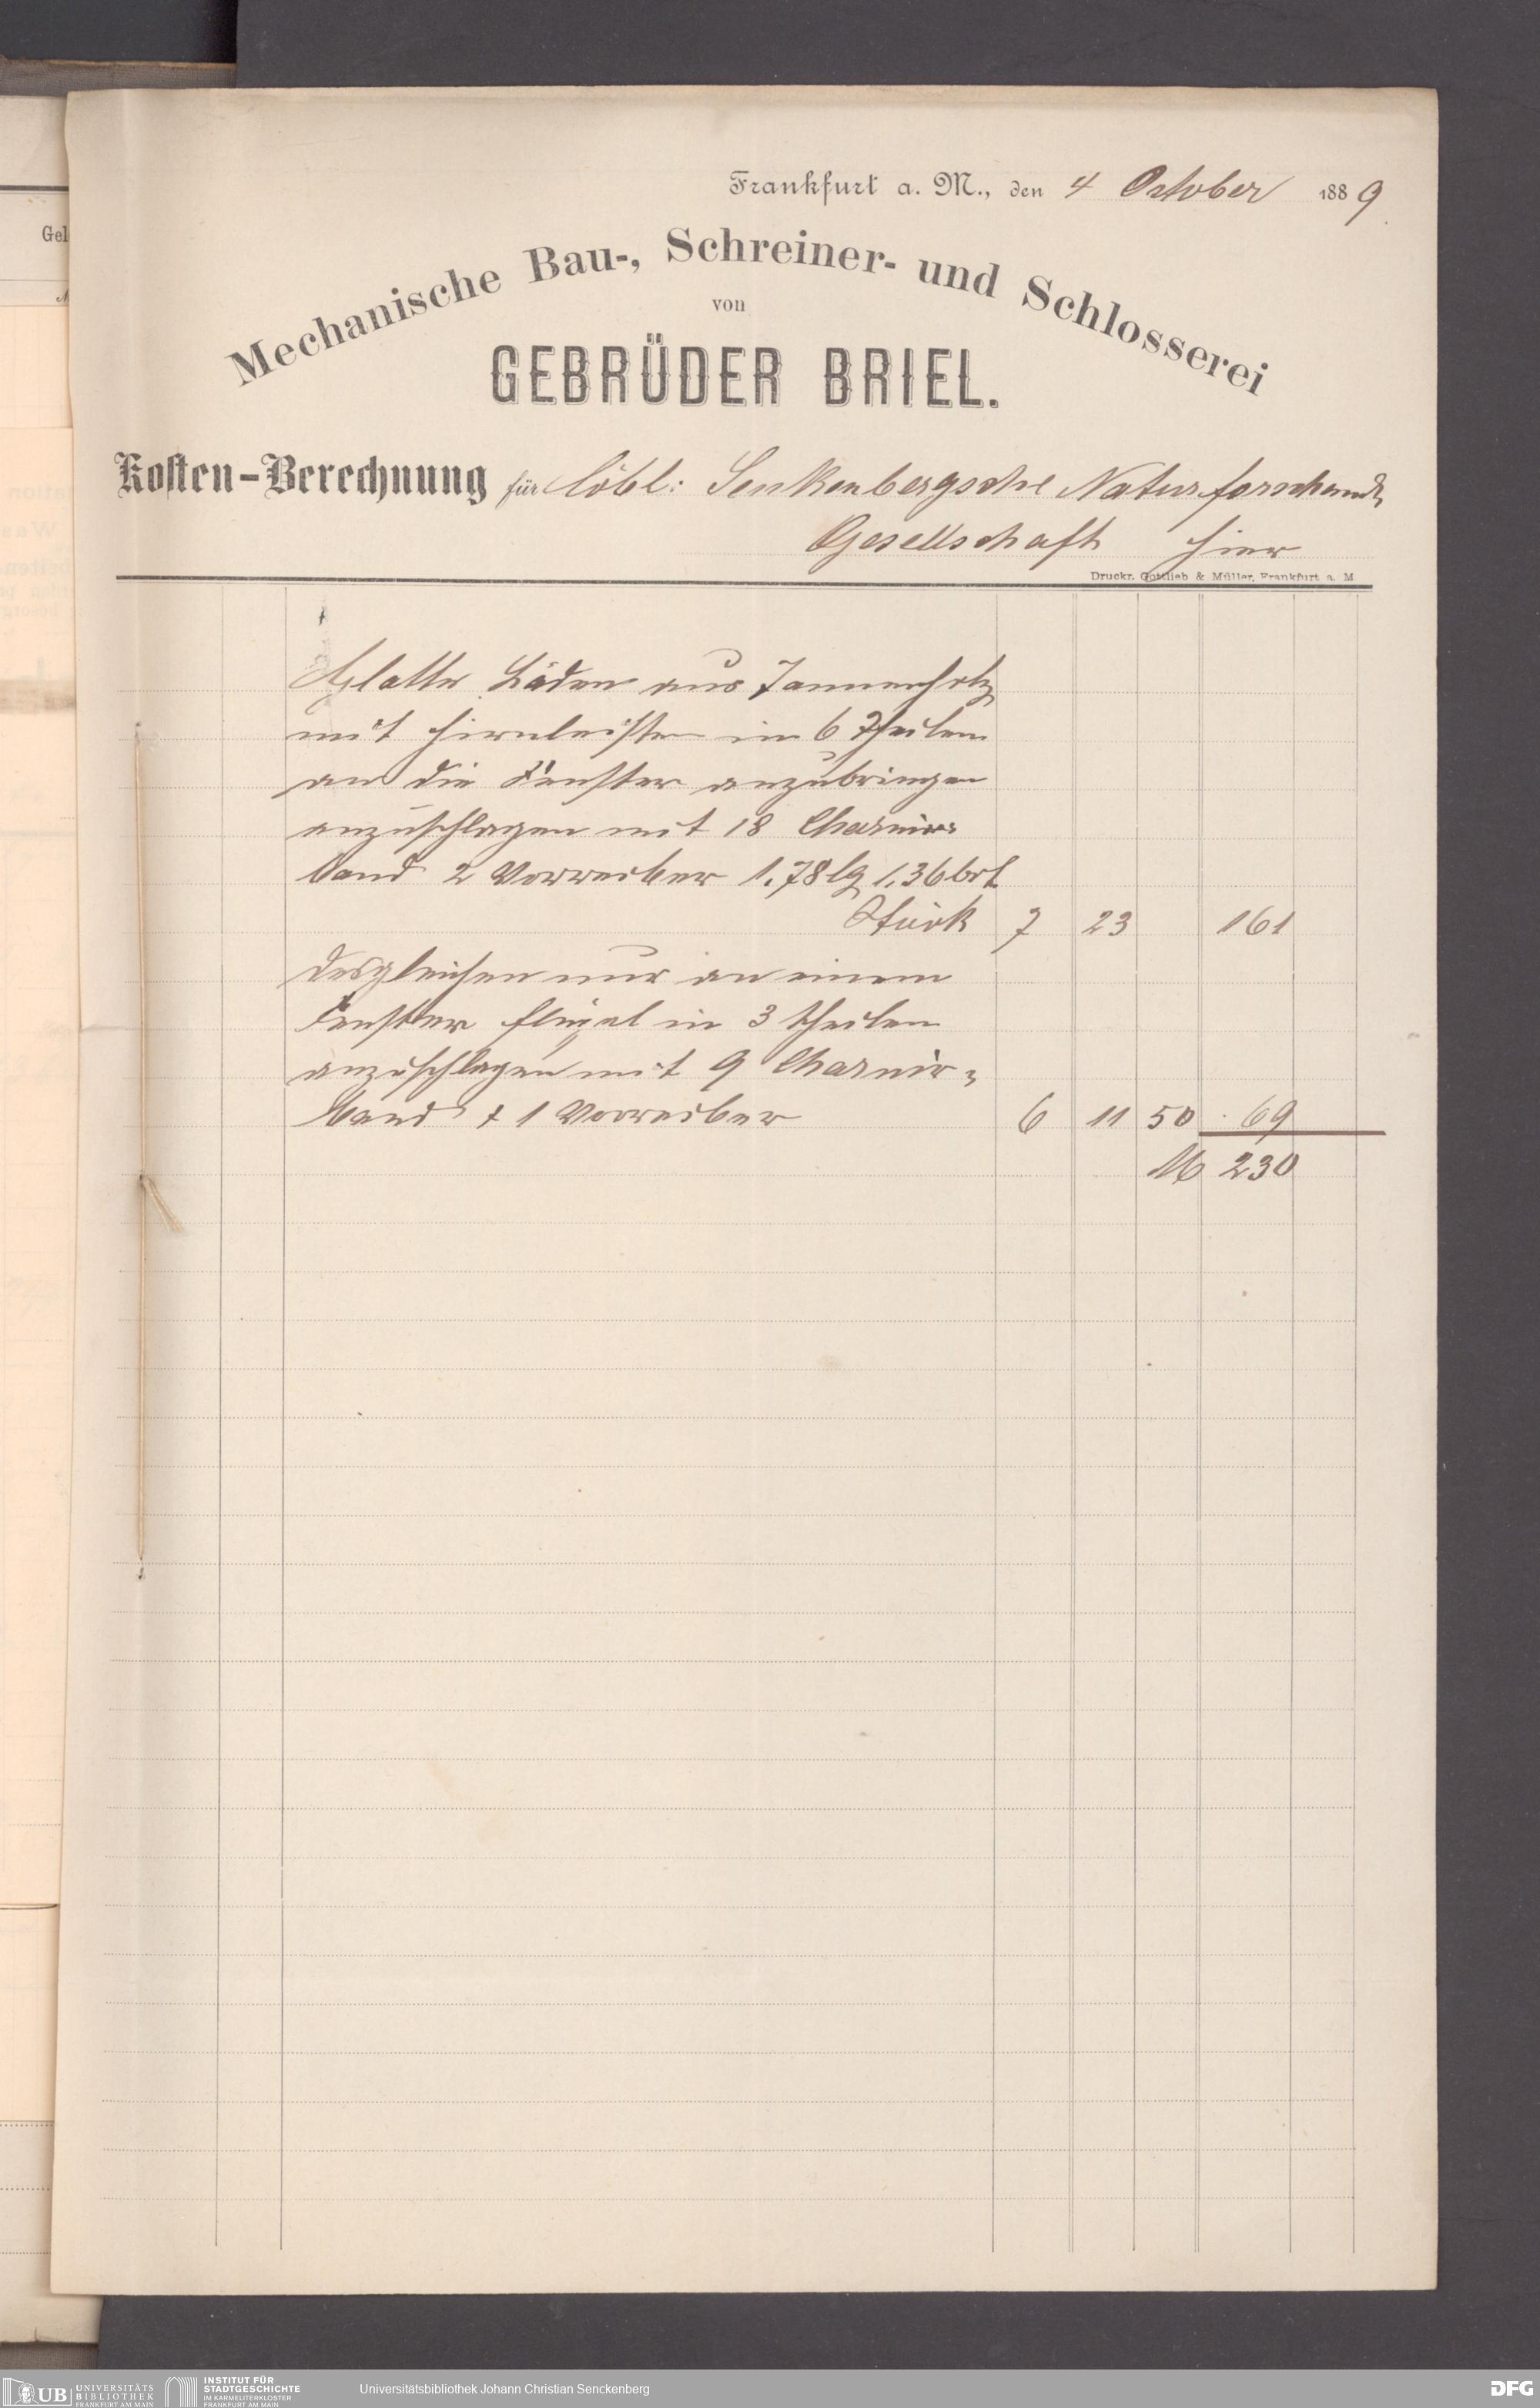 Frankfurt a. M., den 4 October 1889
Mechanische Bau-, Schreiner- und Schlosserei
von
GEBRÜDER BRIEL.
Kosten-Berechnung für löbl: Senkenbergsche Naturforschende
Gesellschaft hier
Druckr. Gottlieb & Müller, Frankfurt a. M
Glatte Läden aus Tannenholz
mit Hirnleisten in 6 Theilen
an die Fenster anzubringen
anzuschlagen mit 18 Charnier
band 2 Vorreiber 1.78 lg 1.36 brt
Stück 7 23 161
desgleichen nur an einem
Fenster flügel in 3 theilen
anzuschlagen mit 9 Charnir=
band + 1 Vorreiber 6 11 50 69
M 230
Gel
UB UNIVERSITÄTS
BIBLIOTHEK
FRANKFURT AM MAIN
INSTITUT FÜR
STADTGESCHICHTE
IM KARMELITERKLOSTER
FRANKFURT AM MAIN
Universitätsbibliothek Johann Christian Senckenberg
DFG